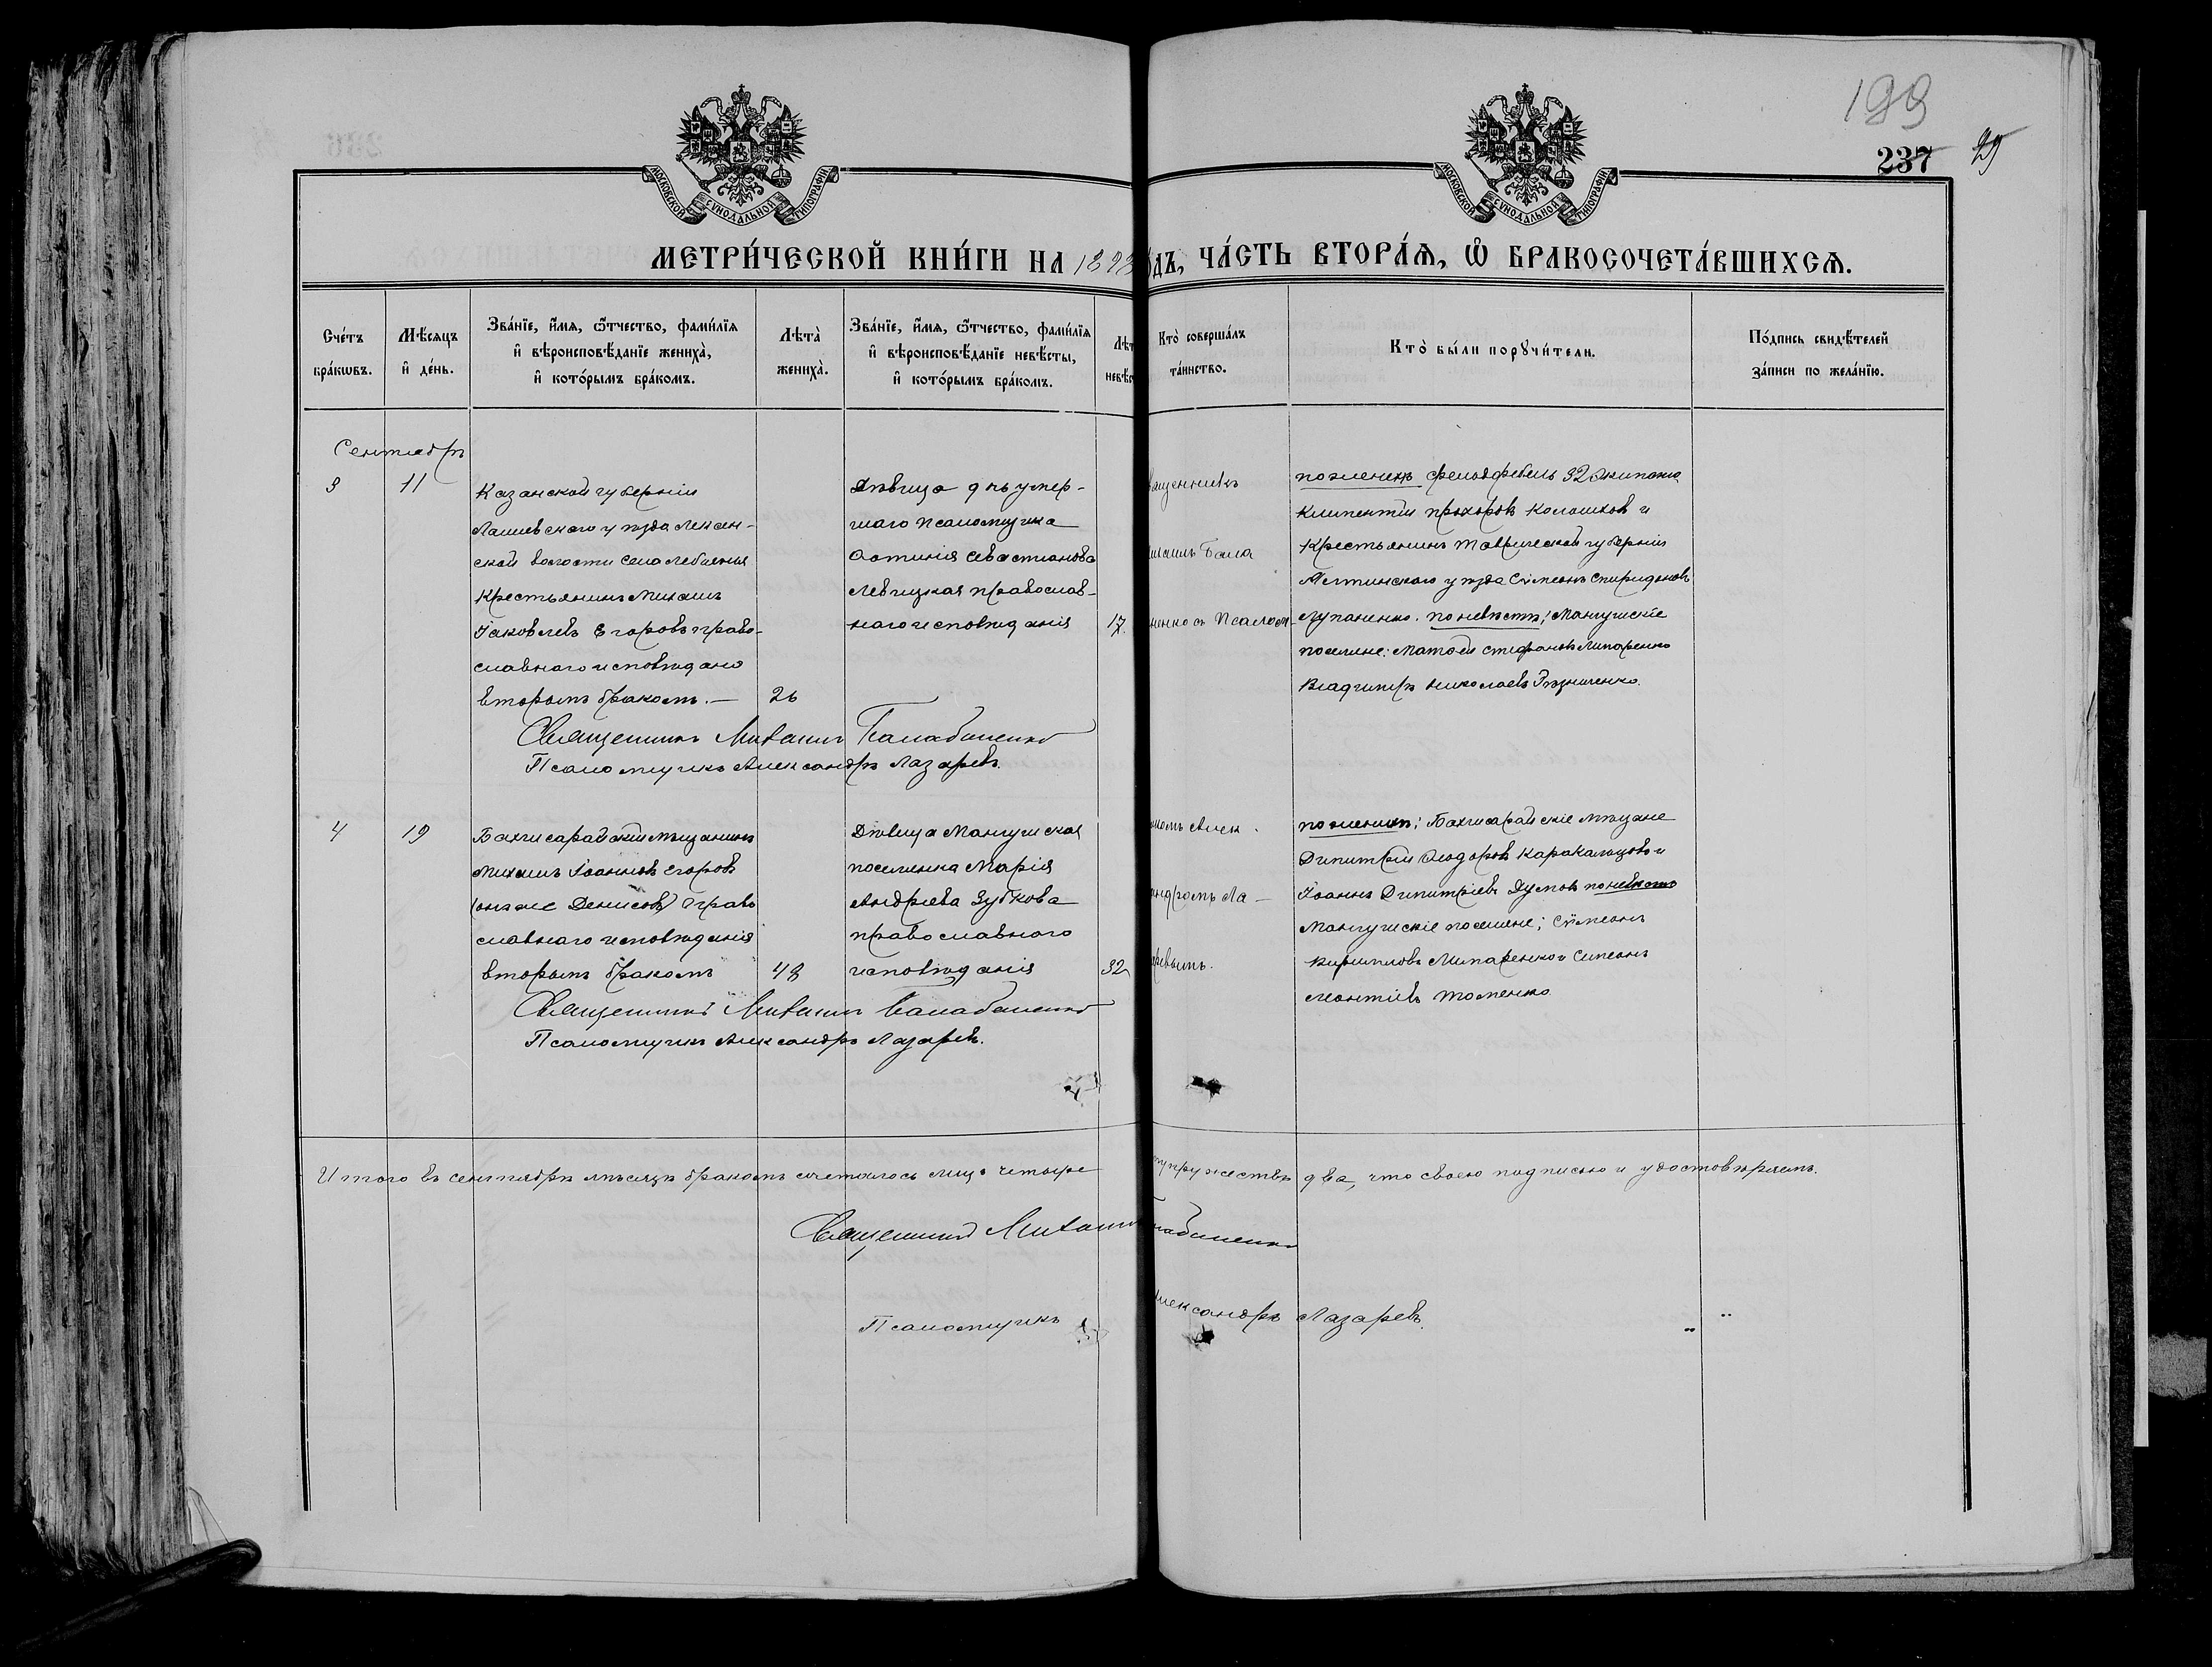 199
237 29
МОСКОВСКОЙ СѴНОДАЛЬНОЙ ТИПОГРАФІИ
МОСКОВСКОЙ СѴНОДАЛЬНОЙ ТИПОГРАФІИ
МЕТРИ́ЧЕСКОЙ КНИ́ГИ НА 1898
ДЪ, ЧА́СТЬ ВТОРА́Ѧ, Ѽ БРАКОСОЧЕТА́ВШИХСѦ.
Сче́тъ бра́кѡвъ.
Мѣ́сяцъ и҆ де́нь.
Зва́нїе, и҆́мя, ѻ҆́тчество, фами́лїя
и҆ вѣроисповѣ́данїе жениха̀,
и҆ кото́рымъ бра́комъ.
Лѣта̀ жениха̀.
Зва́нїе, и҆́мя, ѻ҆́тчество, фами́лїя
и҆ вѣроисповѣ́данїе невѣ́сты,
и҆ кото́рымъ бра́комъ.
Лѣт невѣс
Кто̀ соверша́лъ та́инство.
Кто̀ бы́ли порꙋчи́тели.
По́дпись свидѣ́телей
за́писи по жела́нїю.
Сентябрь
3
11
Казанской губерніи
Лаишевскаго уѣзда
ской волости села
Крестьянинъ Михаилъ
Іаковлевъ Егоровъ право-
славнаго исповѣдано
вторымъ бракомъ. —
26
Дѣвица дчь умер-
шаго псаломщика
Севастианова
Левицкая православ-
наго исповѣданія
17.
ващенникъ
ихаилъ Бала
ненко съ Псалом-
по женихѣ фельдфебель 32 Экипажа
Климентій Прохоровъ и
Крестьянинъ Таврической губерніи
Ялтинскаго уѣзда Сѵмеонъ Спиридоновъ
Лупаненко. по невѣстѣ; Мангушскіе
поселяне: Матвей Стефановъ
Владимиръ Николаевъ
Священникъ Михаилъ Балабаненко
Псаломщикъ Александръ Лазаревъ.
4
19
Бахчисарайскій мѣщанинъ
Михаилъ Іоанновъ Егоровъ
(онъ же Денисовъ) Право
славнаго исповѣданія
вторымъ бракомъ
48
Дѣвица Мангушская
поселянка Марія
Андреева Зубкова
православного
исповѣданія
32
комъ Алек-
андромъ Ла-
ревымъ.
по женихѣ; Бахчисарайскіе мѣщане
Димитрій Ѳеодоровъ и
Іоаннъ Димитріевъ Думовъ по невѣстѣ
Мангушскіе поселяне; Сѵмеонъ
Кирилловъ и Симеонъ
Леонтіевъ Томенко
Священникъ Михаилъ Балабаненко
Псаломщикъ Александръ Лазаревъ.
Итого въ сентябрѣ мѣсяцѣ бракомъ сочеталось лицъ четыре
упружествъ два, что своею подписью и удостовѣряемъ.
Священникъ Михаилъ лабаненко
Псаломщикъ Александръ Лазаревъ.